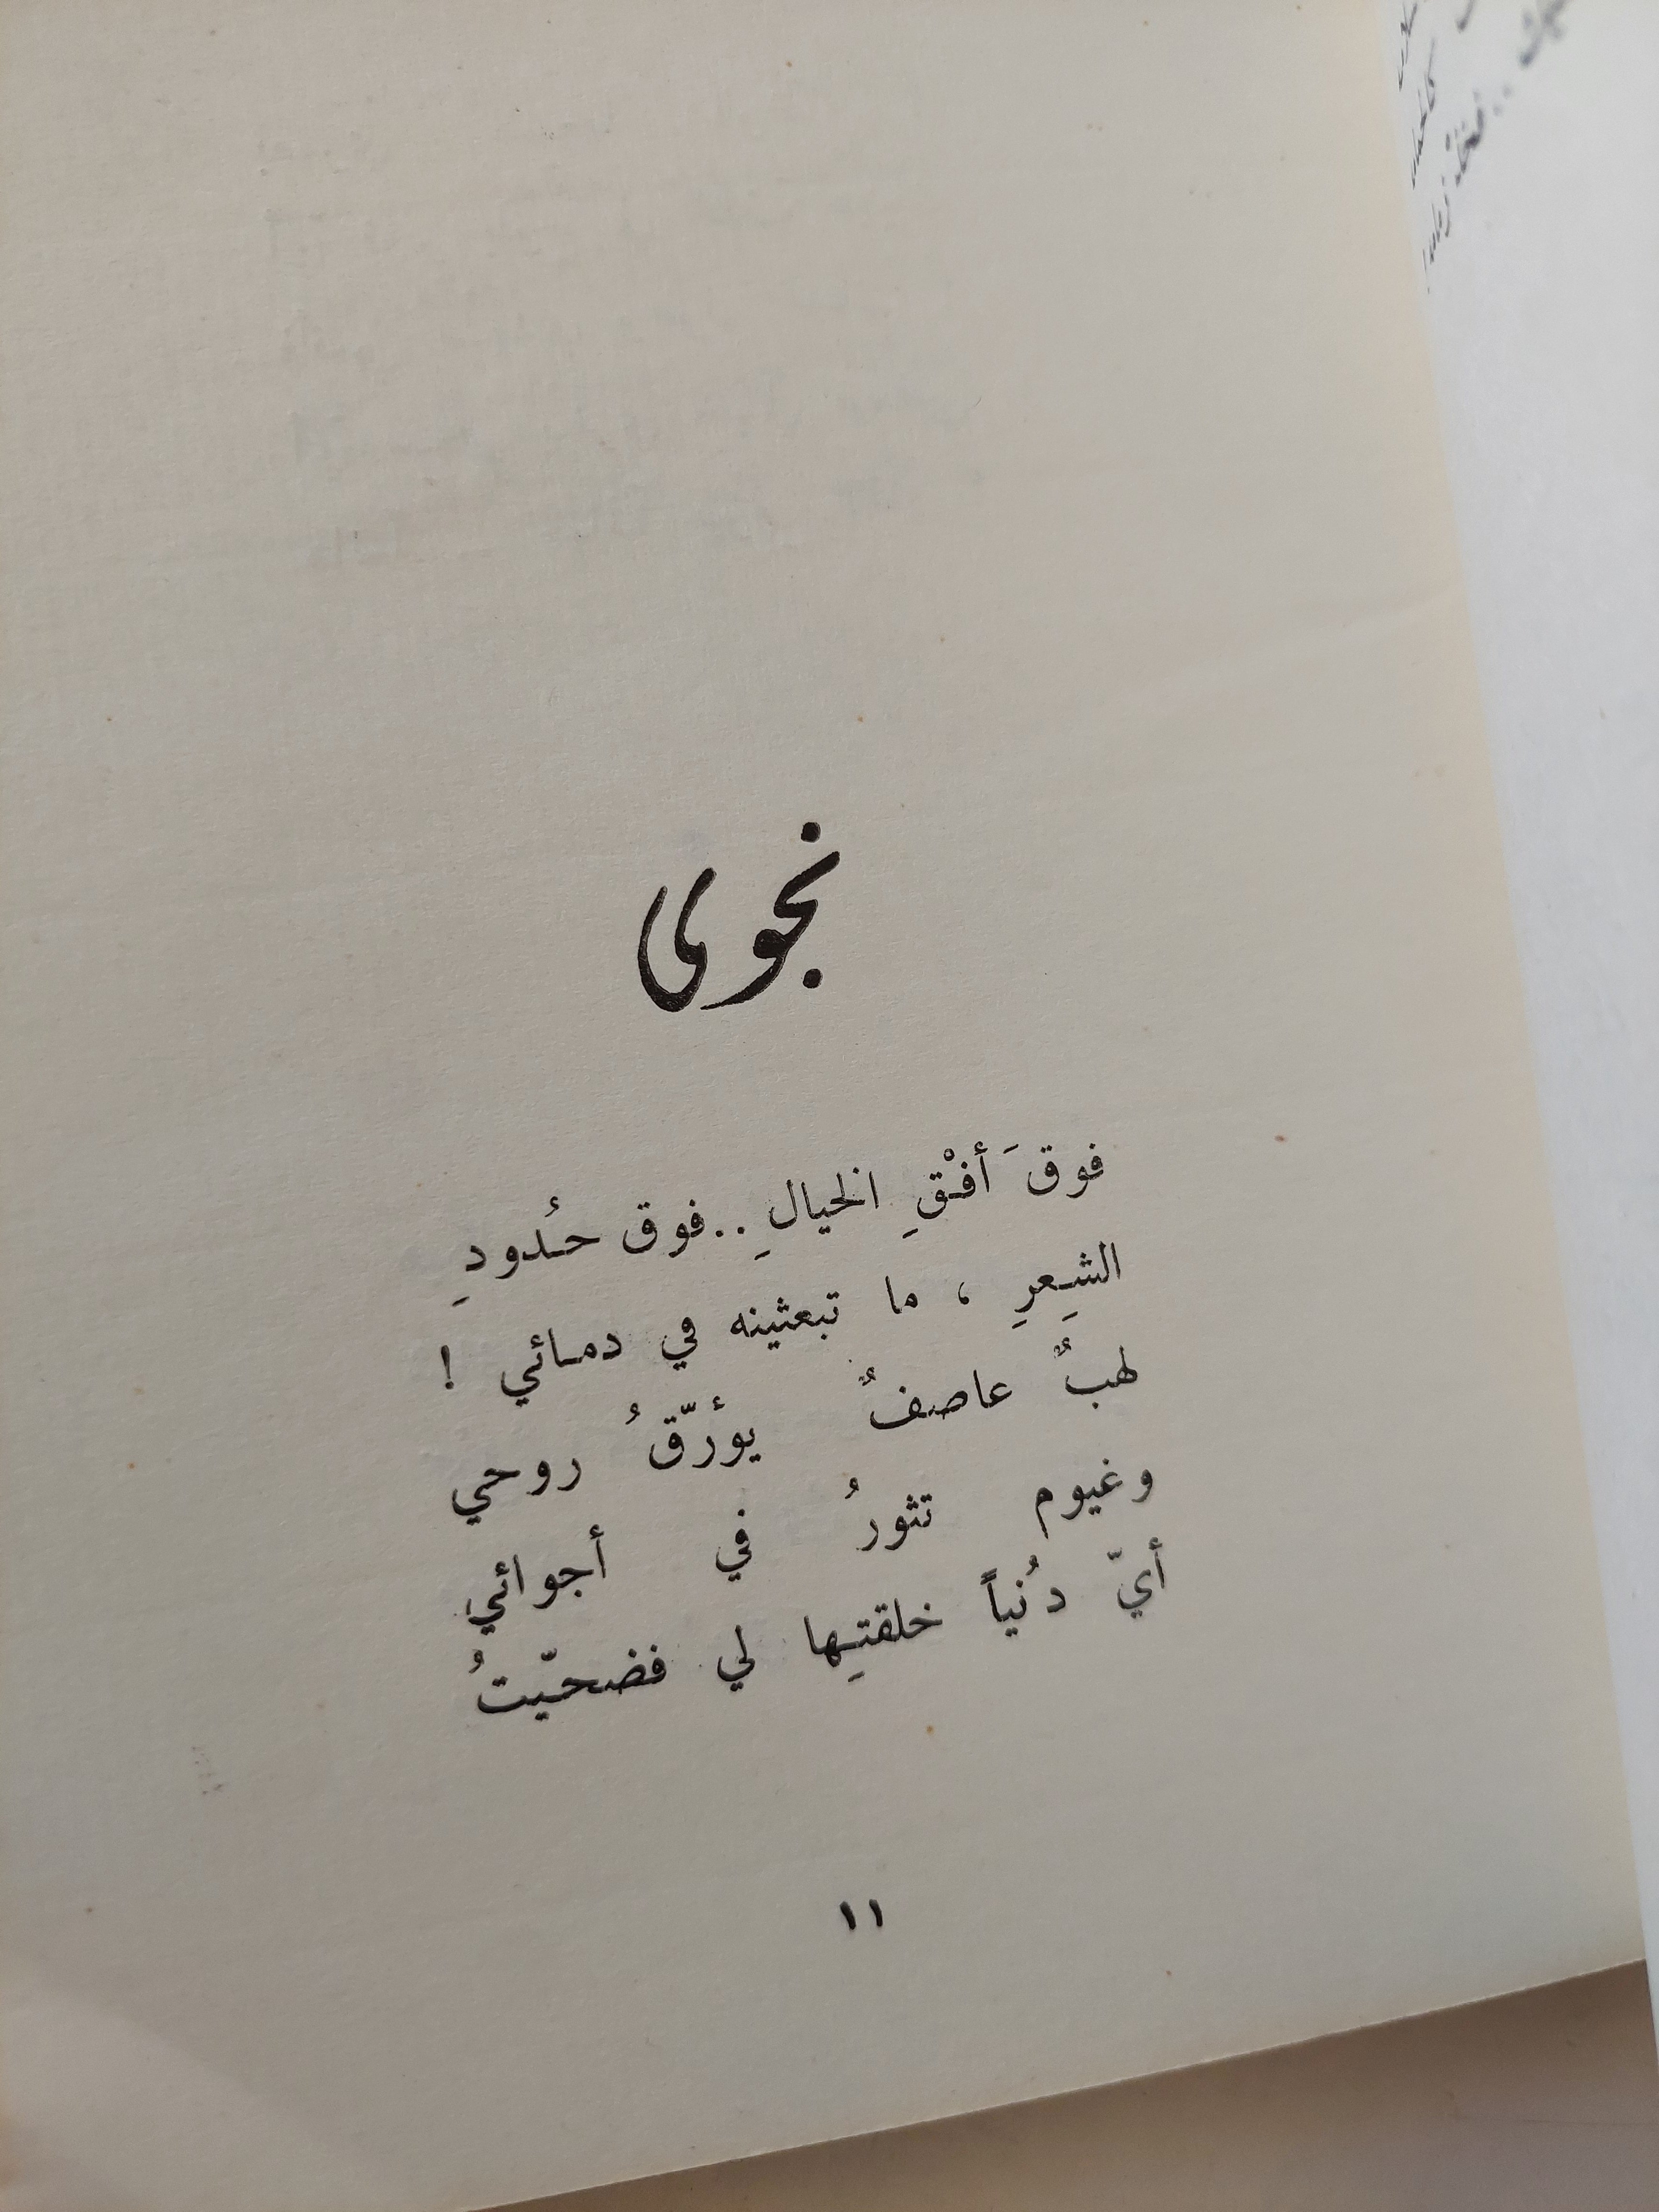 نجوى
فوقَ أفْقِ الخيالِ..فوق حُدودِ
الشِعرِ ، ما تبعثينه في دمائي !
لهبٌ عاصفٌ يؤرّقُ روحي
وغيوم تثورُ في أجوائي
أيّ دُنياً خلقتِها لي فضحيّتُ
١١